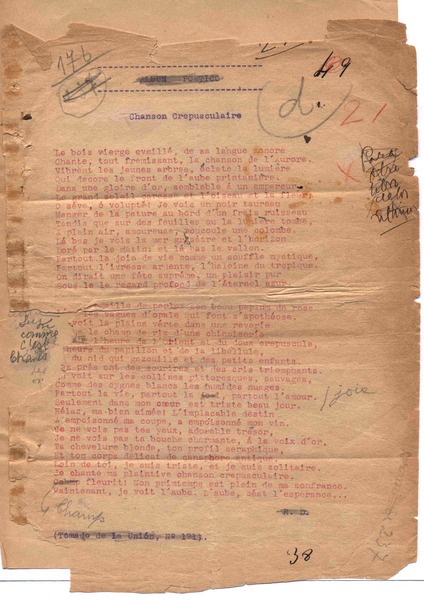 176
49
ALBUM POETICO
d.
21
Chanson Crepusculaire
X
Le bois vierge eveillé, de sa langue sonore
Chante, tout frémissant, la chanson de l'aurore.
Vibrent les jeunes arbres, éclate la lumière
Qui decore le front de l'aube printanière.
Dans une gloire d'or, semblable à un empereur
Le grand soleil
Rêvé, ô volupté! Je vois un noir taureau
Manger de la pature au bord d'un frais ruisseau
Tandis que sur des feuilles ou la lumière tombe
À plein air, amoureuse, roucoule une colombe.
Là bas je vois la mer bleuatre et l'horizon
Doré par le matin: et plus bas le vallon.
Partout la joie de vie comme un souffle mystique,
Partout l'ivresse ardente, l'haleine du tropique.
On dirait une fête suprême, un plaisir pur
Sous le regard profond de l'éternel azur.
perles son beau pupitre de rose
vagues d'opale qui font s'apothéose.
voit la plaine verte dans une reverie
le champ de riz d'une chinoiserie
l'heure de l'orient et du doux crepuscule,
heure du papillon et de la libellule,
du nid qui gazouille et des petits enfants.
Du près ont des sourires et des cris triomphants.
voit sur les collines pittoresques, sauvages,
Comme des cygnes blancs les humides nuages.
Partout la vie, partout la partout l'amour.
Seulement dans mon cœur est triste beau jour.
Hélas, ma bien aimée! L'implacable destin
A empoisonné ma coupe, a empoisonné mon vin.
Je ne vois pas tes yeux, adorable trésor,
Je ne vois pas ta bouche charmante, à la voix d'or.
Ta chevelure blonde, ton profil seraphique,
Et ton corps
Loin de toi, je suis triste, et je suis solitaire.
Je chante ma plaintive chanson crepusculaire.
fleurit: Mon printemps est plein de ma
Maintenant, je voit l'aube. L'aube, c'est l'espérance...
comme
c'est
joie
Champ
R. D.
(Tomado de la Unión, Nº 1913.
38